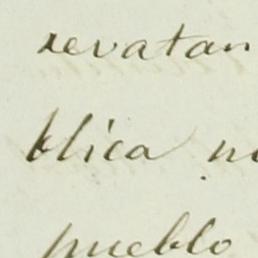 revatan
blica n
pueblo